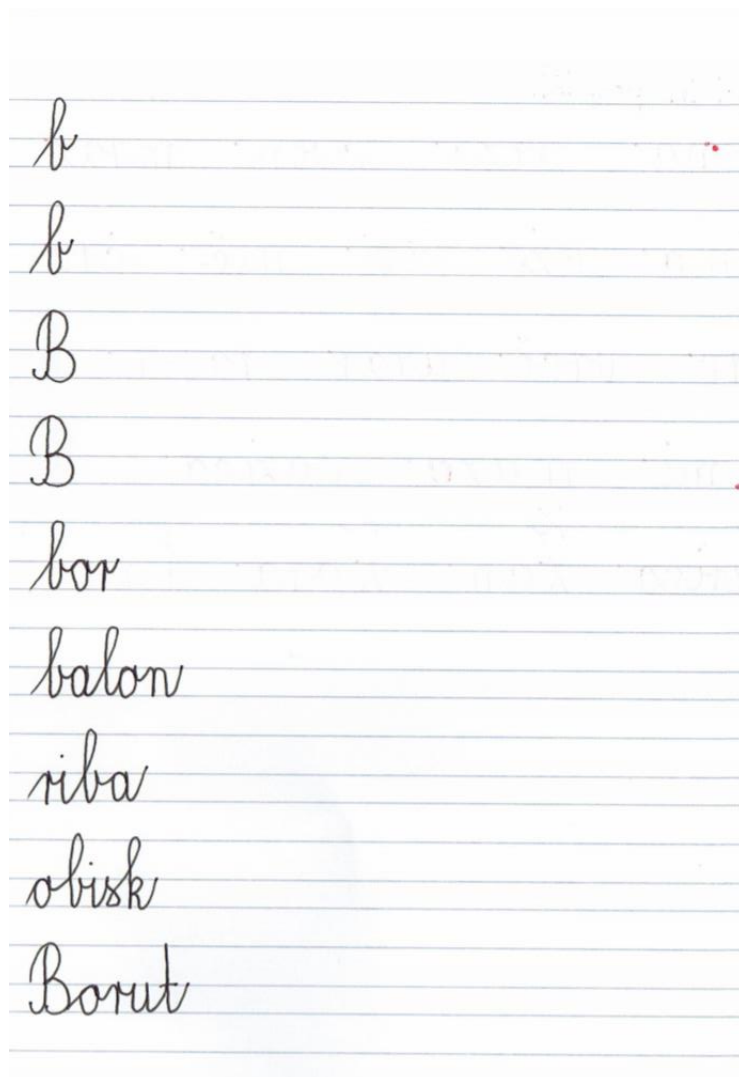 b
b
B
B
bor
balon
riba
obisk
Borut